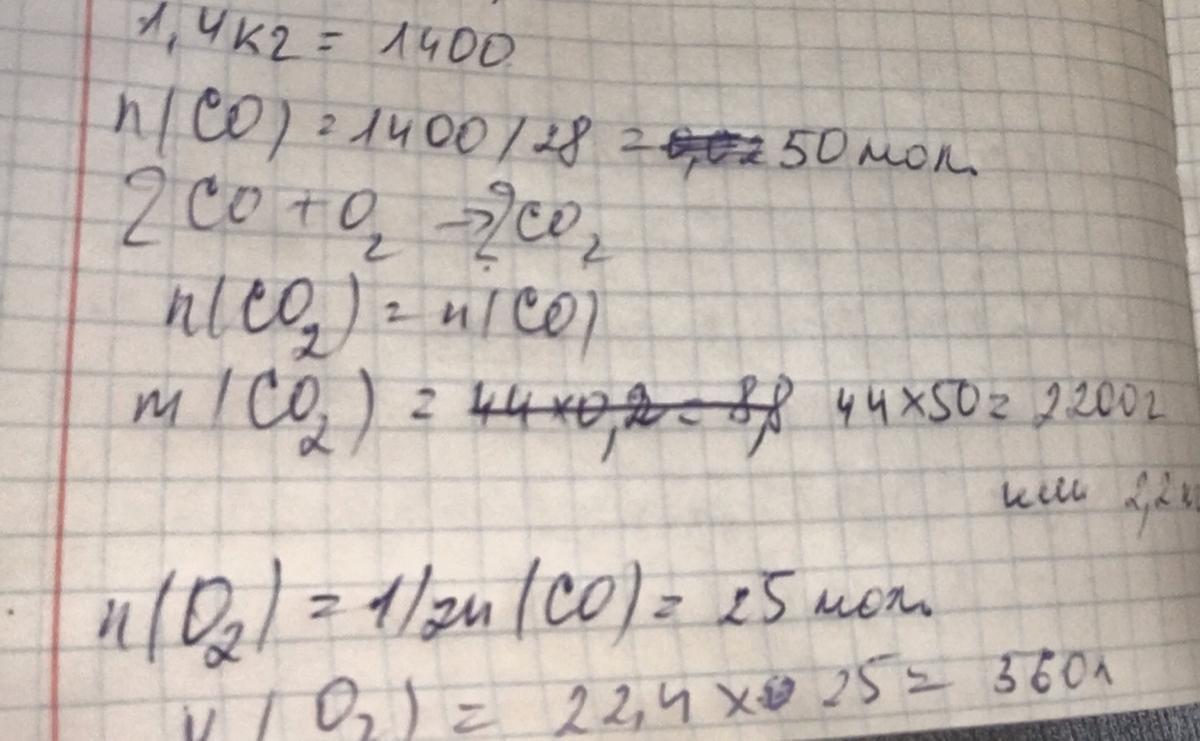 1,4кг = 1400
n(CO) = 1400/28 = 50 мол.
2CO + O2 → 2CO2
n(CO2) = n(CO)
m(CO2) = 44×0,2 = 8,8 44×50 = 2200г
или 2,2к
n(O2) = 1/2n(CO) = 25 мол.
V(O2) = 22,4 × 25 = 560л